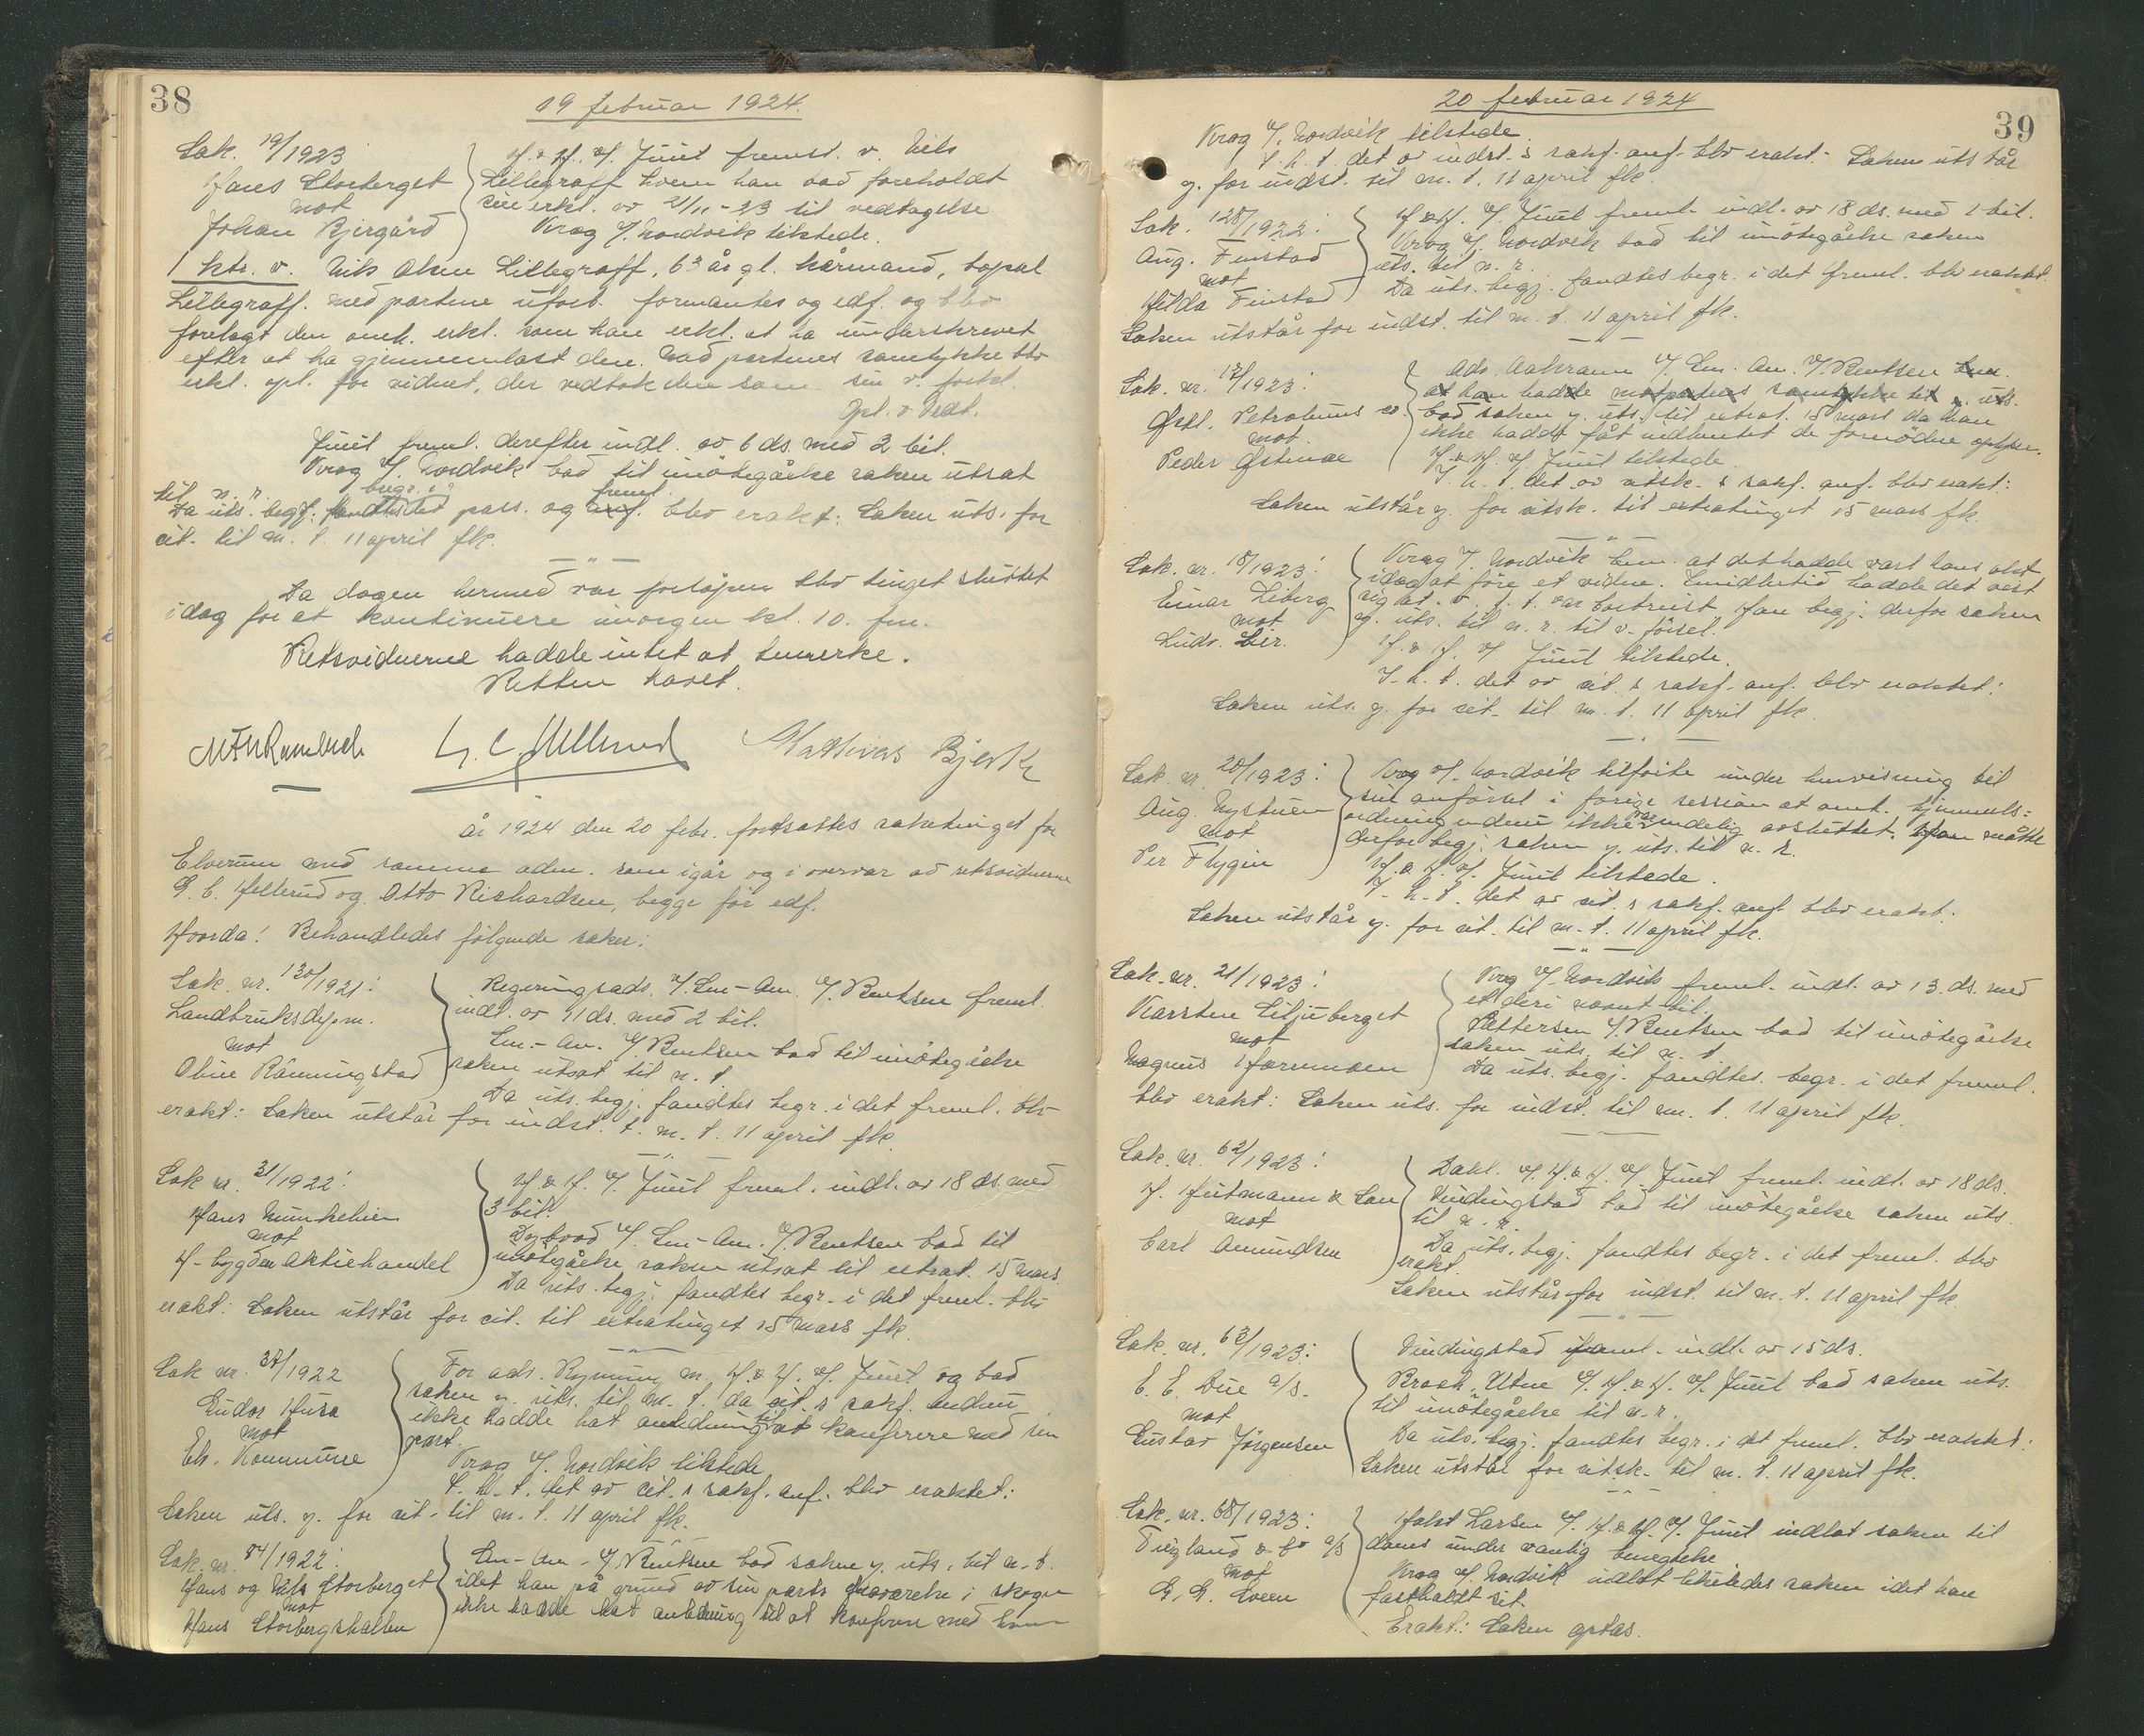 38
19 februar 1924.
Sak. 19/1923
Hans Storberget
mot
Johan Bjergård
H. & H. v/ Juul fremst. v. Nils
Lillegraff hvem han bad foreholdt
sin erkl. av 2/11-23 til vedtagelse
Krog v/ Nordvik tilstede.
1 ste. v. Nils Olsen Lillegraff, 63 år gl. kårmand, bopæl
Lillegraff. med partene uforb. formantes og edf. og blev
forelagt den omh. erkl. som han erkl. at ha underskrevet
efter at ha gjennemlæst den. Med partenes samtykke blev
erkl. opl. for vidnet, der vedtok den som sin v. forkl.
Opl. & vedt.
Juul freml. derefter indl. av 6 ds. med 2 bil.
Krog v/ Nordvik bad til imøtegåelse saken utsat
til n. r.
Da uts. begj. fandtes begr. i det pass. og freml. blev erakt: Saken uts. for
cit. til m. t. 11 april fk.
Da dagen hermed var forløpen blev tinget sluttet
idag for at kontinuere imorgen kl. 10. fm.
Retsvidnerne hadde intet at bemerke.
Retten hævet.
Mathias Bjerke
år 1924 den 20 febr. fortsattes saketinget for
Elverum med samme adm. som igår og i overvær av retsvidnerne
G. C. Hellerud og Otto Richardsen, begge før edf.
Hvorda! Behandledes følgende saker:
Sak. nr. 130/1921:
Landbruksdepm.
mot
Oline Rønningstad
Regjeringsadv. v/ Em-Am. v/ Bentsen freml.
indl. av 11 ds. med 2 bil.
Em.-Am. v/ Bentsen bad til imøtegåelse
saken utsat til n. t.
Da uts. begj. fandtes begr. i det freml. blev
erakt: Saken utstår for indst. t. m. t. 11 april fk.
Sak nr. 31/1922:
Hans Munkelien
mot
H-bygden Aktiehandel
H. & H. v/ Juul freml. indl. av 18 ds. med
3 bil.
Dybvad v/ Em-Am. v/ Bentsen bad til
imøtegåelse saken utsat til extrat. 15 mars
Da uts. begj. fandtes begr. i det freml. blev
erakt: Saken utstår for cit. til extratinget 15 mars fk.
Sak nr. 37/1922
Gudor Husa
mot
Elv. Kommune
For adv. Ryning m. H. & H. v/ Juul og bad
saken y. uts. til m. t. da cit. s sakf. endnu
ikke hadde hat anledning til at konferere med sin
part.
Krog v/ Nordvik tilstede
T. h. t. det av cit. s sakf. anf. blev eraktet:
Saken uts. y. for cit. til m. t. 11 april fk.
Sak. nr. 84/1922:
Hans og Nils Storberget
mot
Hans Storbergshallen
Em-Am. v/ Bentsen bad saken y. uts. til n. t.
idet han på grund av sin parts fraværelse i skogen
ikke hadde hat anledning til at konferere med ham
39
20 februar 1924
Krog v/ Nordvik tilstede.
T. h. t. det av indst. s sakf. anf. blev erakt: Saken utstår
y. for indst. til m. t. 11 april fk.
Sak. 128/1922:
Aug. Finstad
mot
Hilda Finstad
H. & H. v/ Juul freml. indl. av 18 ds. med 1 bil.
Krog v/ Nordvik bad til imøtegåelse saken
uts. til n. r.
Da uts. begj. fandtes begr. i det freml. blev eraktet:
Saken utstår for indst. til m. t. 11 april fk.
Sak. nr. 17/1923:
Østl. Petroleums co.
mot.
Peder Østmoe
Adv. Aakrann v/ Em. Am. v/ Bentsen bem.
at han hadde motpartens samtykke til y. uts.
bad saken y. uts. til extrat. 15 mars da han
ikke hadde fåt indhentet de fornødne oplysn.
H. & H. v/ Juul tilstede.
T. h. t. det av citsk. s sakf. anf. blev erakt:
Saken utstår y. for citsk. til extratinget 15 mars fk.
Sak. nr. 18/1923:
Einar Liberg
mot
Ludv. Lier.
Krog v/ Nordvik bem. at det hadde vært hans agt
idag at føre et vidne. Imidlertid hadde det vist
sig at v. f. t. var bortreist. Han begj. derfor saken
y. uts. til n. r. til v. førsel.
H. & H. v/ Juul tilstede.
T. h. t. det av cit. s sakf. anf. blev eraktet:
Saken uts. y. for cit. til m. t. 11 april fk.
Sak nr. 20/1923:
Aug. Nystuen
mot
Per Flygin
Krog v/ Nordvik tilføite under henvisning til
sin anførsel i forrige session at omt. hjemmels=
ordning endnu ikke var endelig avsluttet. Han måtte
derfor begj. saken y. uts. til n. r.
H. & H. v/ Juul tilstede.
T. h. t. det av cit. s sakf. anf. blev erakt:
Saken utstår y. for cit. til m. t. 11 april fk.
Sak. nr. 21/1923:
Karsten Liljuberget
mot
Magnus Horenmoen
Krog v/ Nordvik freml. indl. av 13. ds. med
et deri nævnt bil.
Pettersen v/ Bentsen bad til imøtegåelse
saken uts. til n. t.
Da uts. begj. fandtes begr. i det freml.
blev erakt: Saken uts. for indst. til m. t. 11 april fk.
Sak. nr. 62/1923:
H. Hutmann & Søn
mot
Carl Amundsen
Dahl. v/ H. & H. v/ Juul freml. indl. av 18 ds.
Vindingstad bad til imøtegåelse saken uts.
til n. r.
Da uts. begj. fandtes begr. i det freml. blev
erakt.
Saken utstår for indst. til m. t. 11 april fk.
Sak. nr. 63/1923:
E. E. Due a/s.
mot
Gustav Jørgensen
Vindingstad freml. indl. av 15 ds.
Broch Utne v/ H. & H. v/ Juul bad saken uts.
til imøtegåelse til n. r.
Da uts. begj. fandtes begr. i det freml. blev eraktet:
Saken utstår for citsk. til m. t. 11 april fk.
Sak. nr. 68/1923:
Tugland & Co a/s
mot
G. G. Sveen
Holst Larsen v/ H. & H. v/ Juul indlot saken til
doms under vanlig benegtelse
Krog v/ Nordvik indlot likeledes saken idet han
fastholdt sit.
Erakt.: Saken optas.